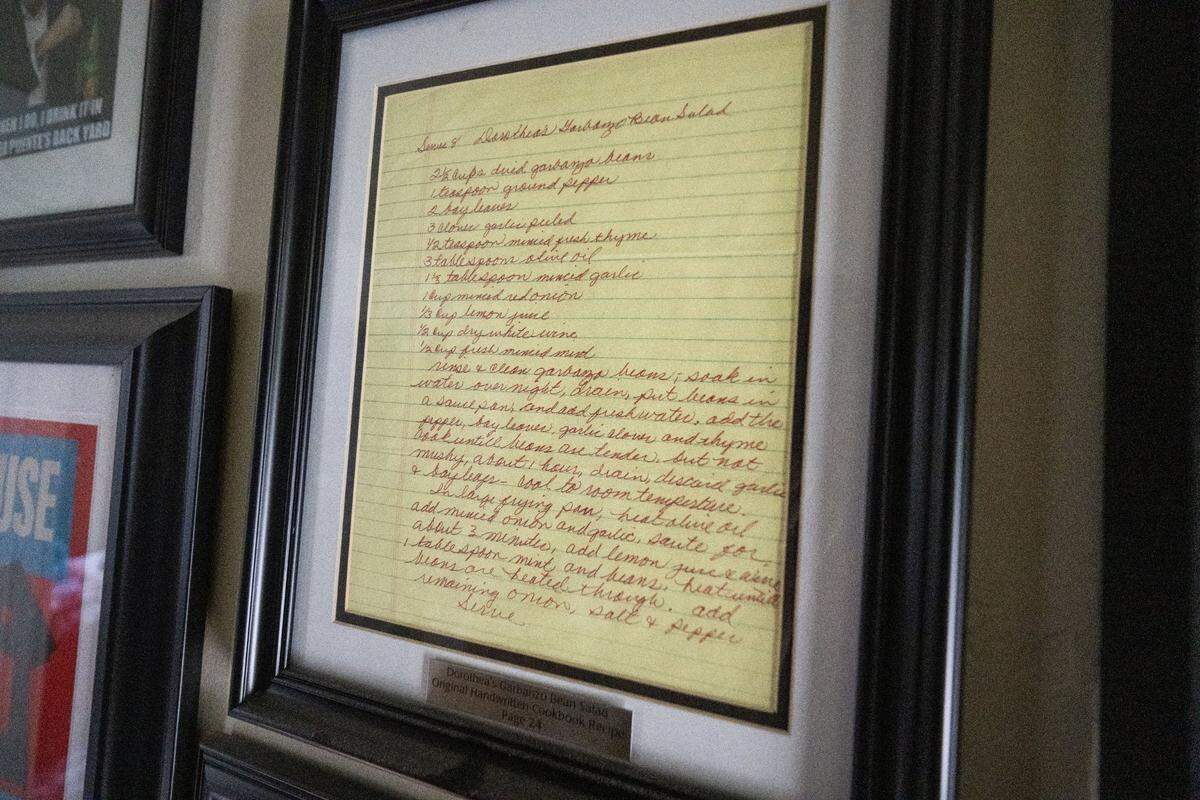 HEN I DO, I DRINK IN
A PUENTE'S BACK YARD
USE
Serves 8 Dorothea's Garbanzo Bean Salad
2½ cups dried garbanzo beans
1 teaspoon ground pepper
2 bay leaves
3 cloves garlic peeled
½ teaspoon minced fresh thyme
3 tablespoons olive oil
1½ tablespoon minced garlic
1 cup minced red onion
⅓ cup lemon juice
½ cup dry white wine
½ cup fresh minced mint
rinse & clean garbanzo beans; soak in
water overnight, drain, put beans in
a saucepan, and add fresh water, add the
pepper, bay leaves, garlic cloves and thyme
cook untill beans are tender, but not
mushy, about 1 hour, drain, discard garlic
& bay leaps - cool to room temperture.
In large frying pan, heat olive oil
add minced onion and garlic, saute for
about 3 minutes, add lemon juice & wine
1 tablespoon mint, and beans, heat until
beans are heated through. add
remaining onion, salt & pepper
Serve
Dorothea's Garbanzo Bean Salad
Original Handwritten Cookbook Recipe
Page 24